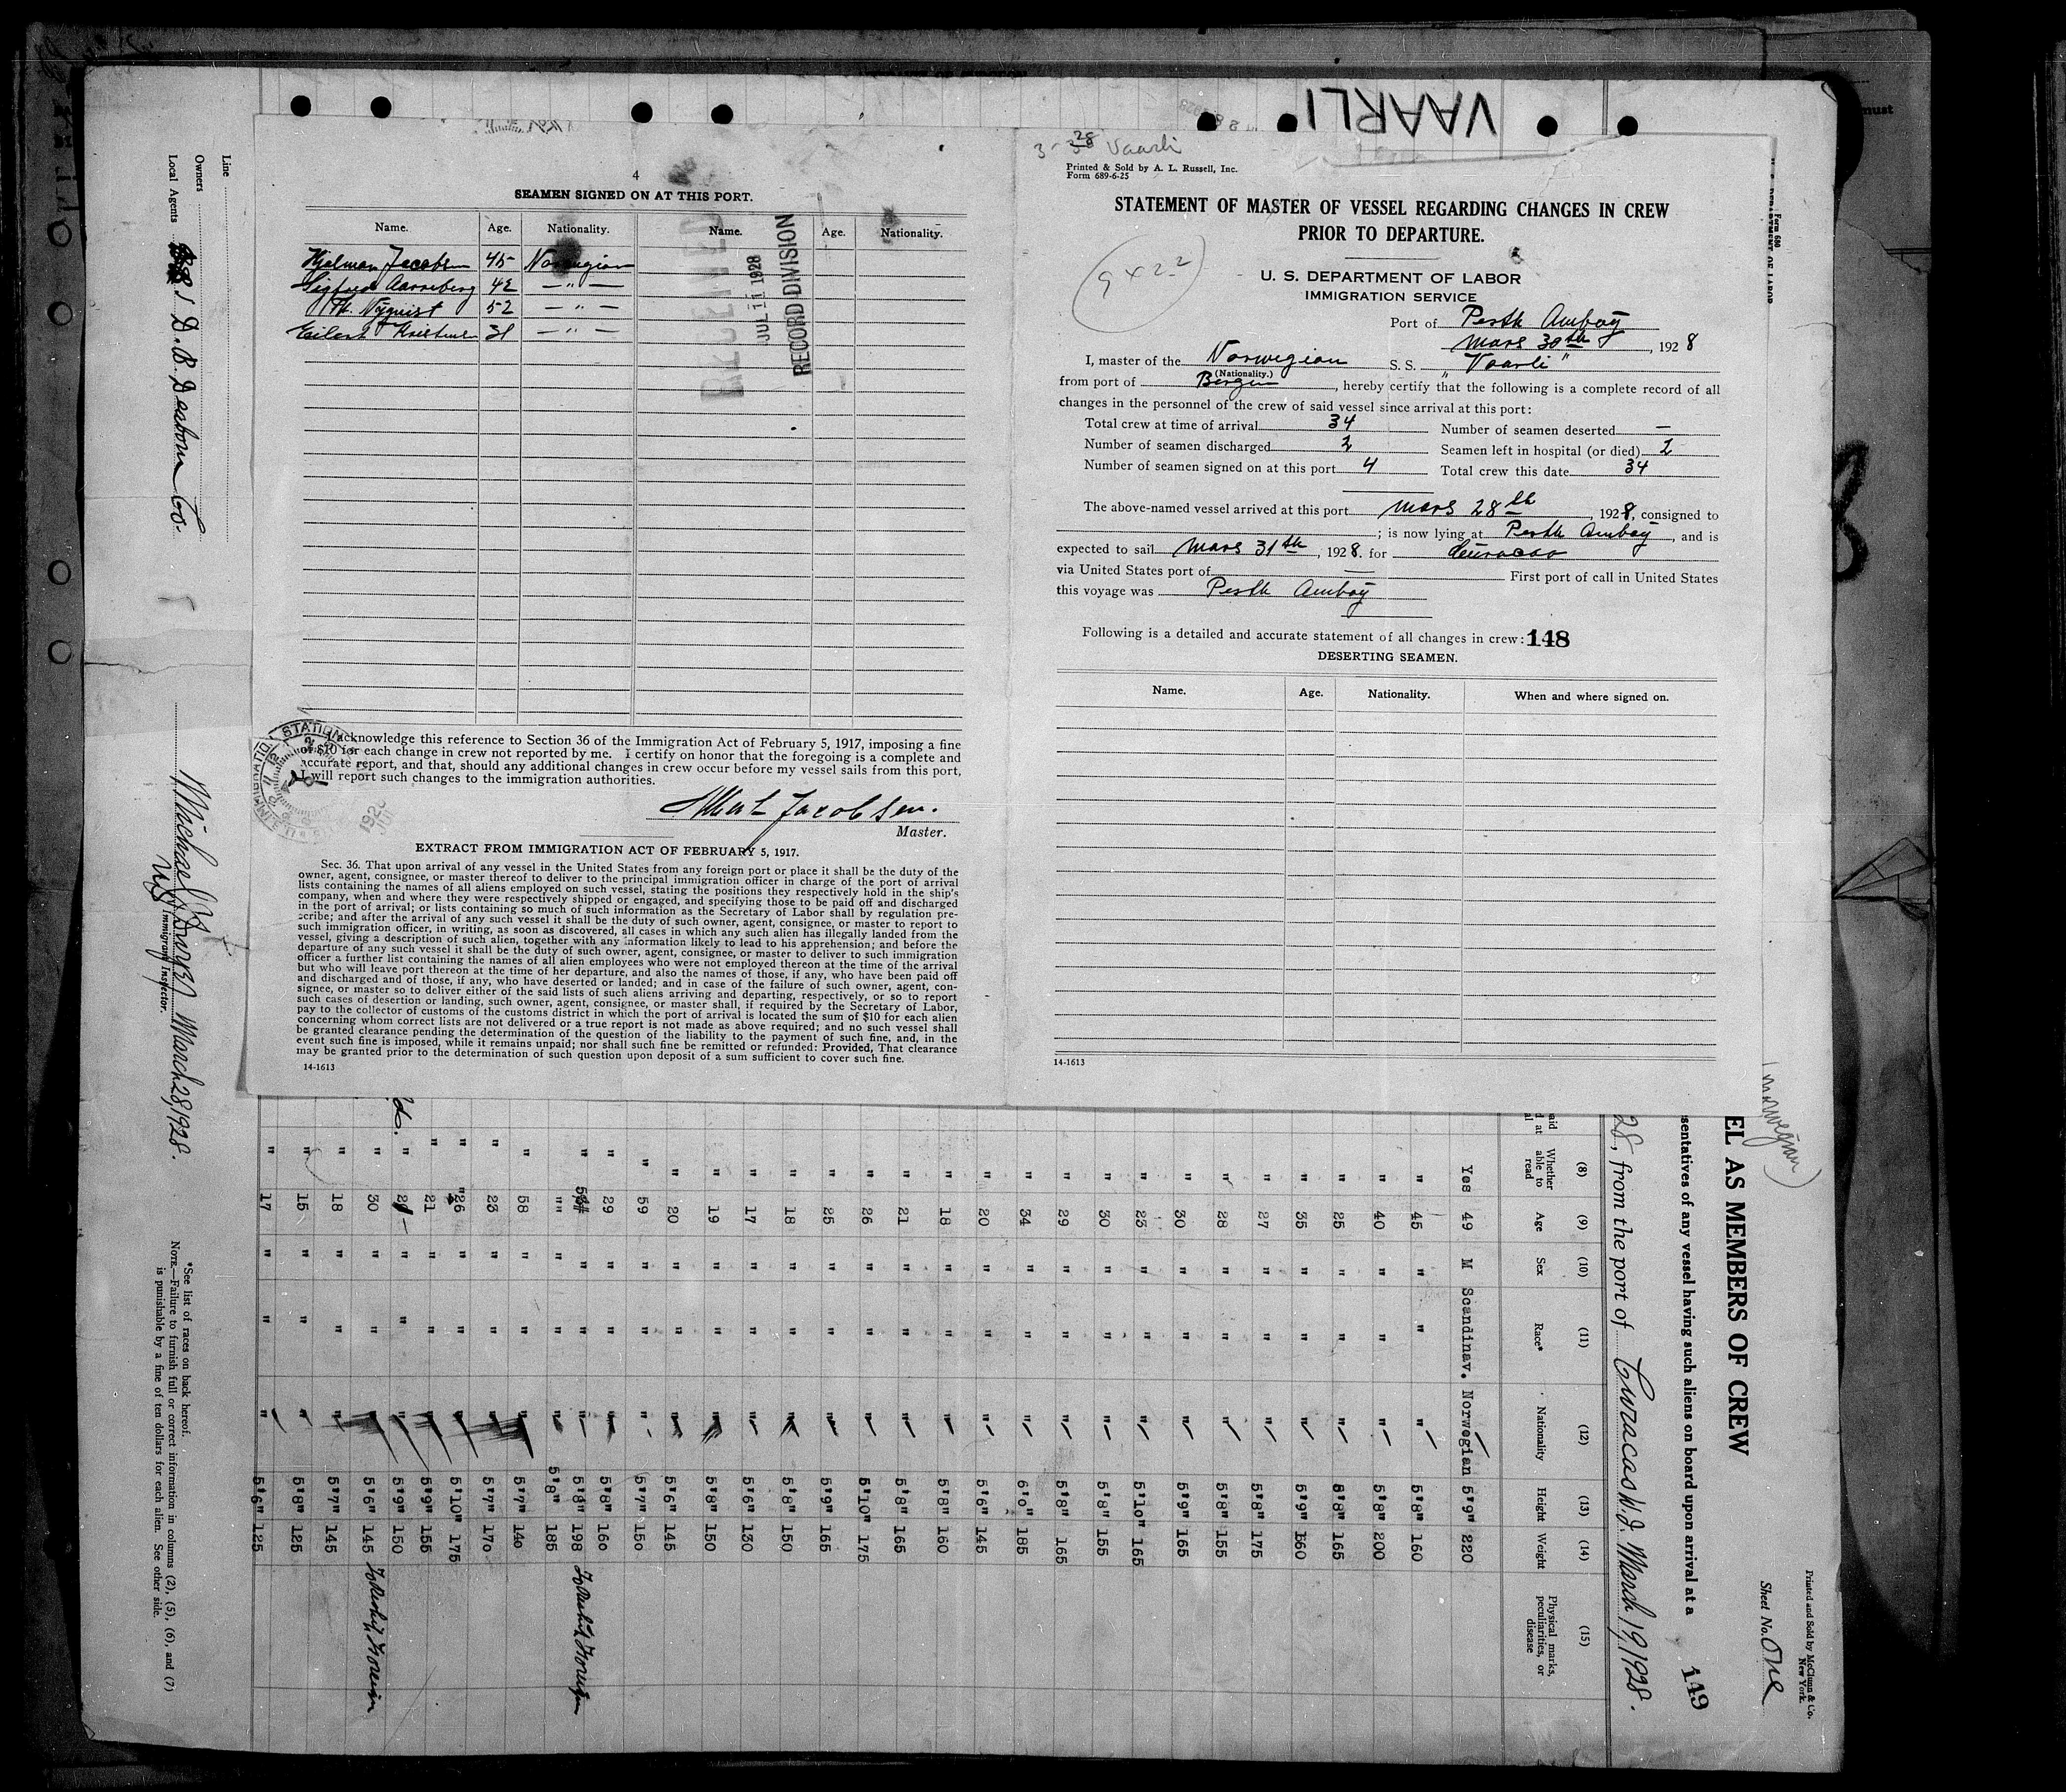 VAARLI
4
SEAMEN SIGNED ON AT THIS PORT.
Name. Age. Nationality. Name. Age. Nationality.
Hjalmar Jacobsen 45 Norwegian
Sigfred Aarreberg 42 — " —
Th. Nyquist 52 — " —
Eilert 31 — " —
RECEIVED
JUL 11 1928
RECORD DIVISION
I acknowledge this reference to Section 36 of the Immigration Act of February 5, 1917, imposing a fine
of $10 for each change in crew not reported by me. I certify on honor that the foregoing is a complete and
accurate report, and that, should any additional changes in crew occur before my vessel sails from this port,
I will report such changes to the immigration authorities.
Albert Jacobsen.
Master.
EXTRACT FROM IMMIGRATION ACT OF FEBRUARY 5, 1917.
Sec. 36. That upon arrival of any vessel in the United States from any foreign port or place it shall be the duty of the
owner, agent, consignee, or master thereof to deliver to the principal immigration officer in charge of the port of arrival
lists containing the names of all aliens employed on such vessel, stating the positions they respectively hold in the ship's
company, when and where they were respectively shipped or engaged, and specifying those to be paid off and discharged
in the port of arrival; or lists containing so much of such information as the Secretary of Labor shall by regulation pre-
scribe; and after the arrival of any such vessel it shall be the duty of such owner, agent, consignee, or master to report to
such immigration officer, in writing, as soon as discovered, all cases in which any such alien has illegally landed from the
vessel, giving a description of such alien, together with any information likely to lead to his apprehension; and before the
departure of any such vessel it shall be the duty of such owner, agent, consignee, or master to deliver to such immigration
officer a further list containing the names of all alien employees who were not employed thereon at the time of the arrival
but who will leave port thereon at the time of her departure, and also the names of those, if any, who have been paid off
and discharged and of those, if any, who have deserted or landed; and in case of the failure of such owner, agent, con-
signee, or master so to deliver either of the said lists of such aliens arriving and departing, respectively, or so to report
such cases of desertion or landing, such owner, agent, consignee, or master shall, if required by the Secretary of Labor,
pay to the collector of customs of the customs district in which the port of arrival is located the sum of $10 for each alien
concerning whom correct lists are not delivered or a true report is not made as above required; and no such vessel shall
be granted clearance pending the determination of the question of the liability to the payment of such fine, and, in the
event such fine is imposed, while it remains unpaid; nor shall such fine be remitted or refunded: Provided, That clearance
may be granted prior to the determination of such question upon deposit of a sum sufficient to cover such fine.
14-1613
3-28 Vaarli
Printed & Sold by A. L. Russell, Inc.
Form 689-6-25
STATEMENT OF MASTER OF VESSEL REGARDING CHANGES IN CREW
PRIOR TO DEPARTURE.
U. S. DEPARTMENT OF LABOR
IMMIGRATION SERVICE
Port of Perth Amboy
Mars 30th, 1928
I, master of the Norwegian S. S. "Vaarli"
(Nationality.)
from port of Bergen, hereby certify that the following is a complete record of all
changes in the personnel of the crew of said vessel since arrival at this port:
Total crew at time of arrival 34 Number of seamen deserted —
Number of seamen discharged 2 Seamen left in hospital (or died) 2
Number of seamen signed on at this port 4 Total crew this date 34
The above-named vessel arrived at this port mars 28th, 1928, consigned to
; is now lying at Perth Amboy, and is
expected to sail mars 31th, 1928. for Curacao
via United States port of — First port of call in United States
this voyage was Perth Amboy
Following is a detailed and accurate statement of all changes in crew: 148
DESERTING SEAMEN.
Name. Age. Nationality. When and where signed on.
14-1613
Line
Owners
Local Agents
Michael
March 28, 1928.
Immigrant Inspector.
*See list of races on back hereof.
NOTE.—Failure to furnish full or correct information in columns (2), (5), (6), and (7)
is punishable by a fine of ten dollars for each alien. See other side.
Printed and Sold by McClunn & Co.
New York.
Sheet No. One
(Norwegian)
EL AS MEMBERS OF CREW
149
sentatives of any vessel having such aliens on board upon arrival at a
28, from the port of Curacao W.I. March 19, 1928.
(8) (9) (10) (11) (12) (13) (14) (15)
Whether able to read Age Sex Race* Nationality Height Weight Physical marks, peculiarities, or disease
Yes 49 M Scandinav. Norwegian 5'9" 220
" 45 " " " 5'8" 160
" 40 " " " 5'8" 200
" 25 " " " 5'8" 165
" 35 " " " 5'9" 160
" 27 " " " 5'8" 175
" 28 " " " 5'8" 155
" 30 " " " 5'9" 165
" 23 " " " 5'10" 165
" 30 " " " 5'8" 155
" 29 " " " 5'8" 165
" 34 " " " 6'0" 185
" 20 " " " 5'6" 145
" 18 " " " 5'8" 160
" 21 " " " 5'8" 165
" 26 " " " 5'10" 175
" 25 " " " 5'9" 165
" 18 " " " 5'8" 150
" 17 " " " 5'6" 130
" 19 " " " 5'8" 150
" 20 " " " 5'6" 145
" 59 " " " 5'7" 150
" 29 " " " 5'8" 160
" " " " 5'8" 198
" " " " 5'8" 185
" 58 " " " 5'7" 140
" 23 " " " 5'7" 170
" 26 " " " 5'10" 175
" 21 " " " 5'9" 155
" " " " 5'9" 150
" 30 " " " 5'6" 145
" 18 " " " 5'7" 145
" 15 " " " 5'8" 125
" 17 " " " 5'6" 125